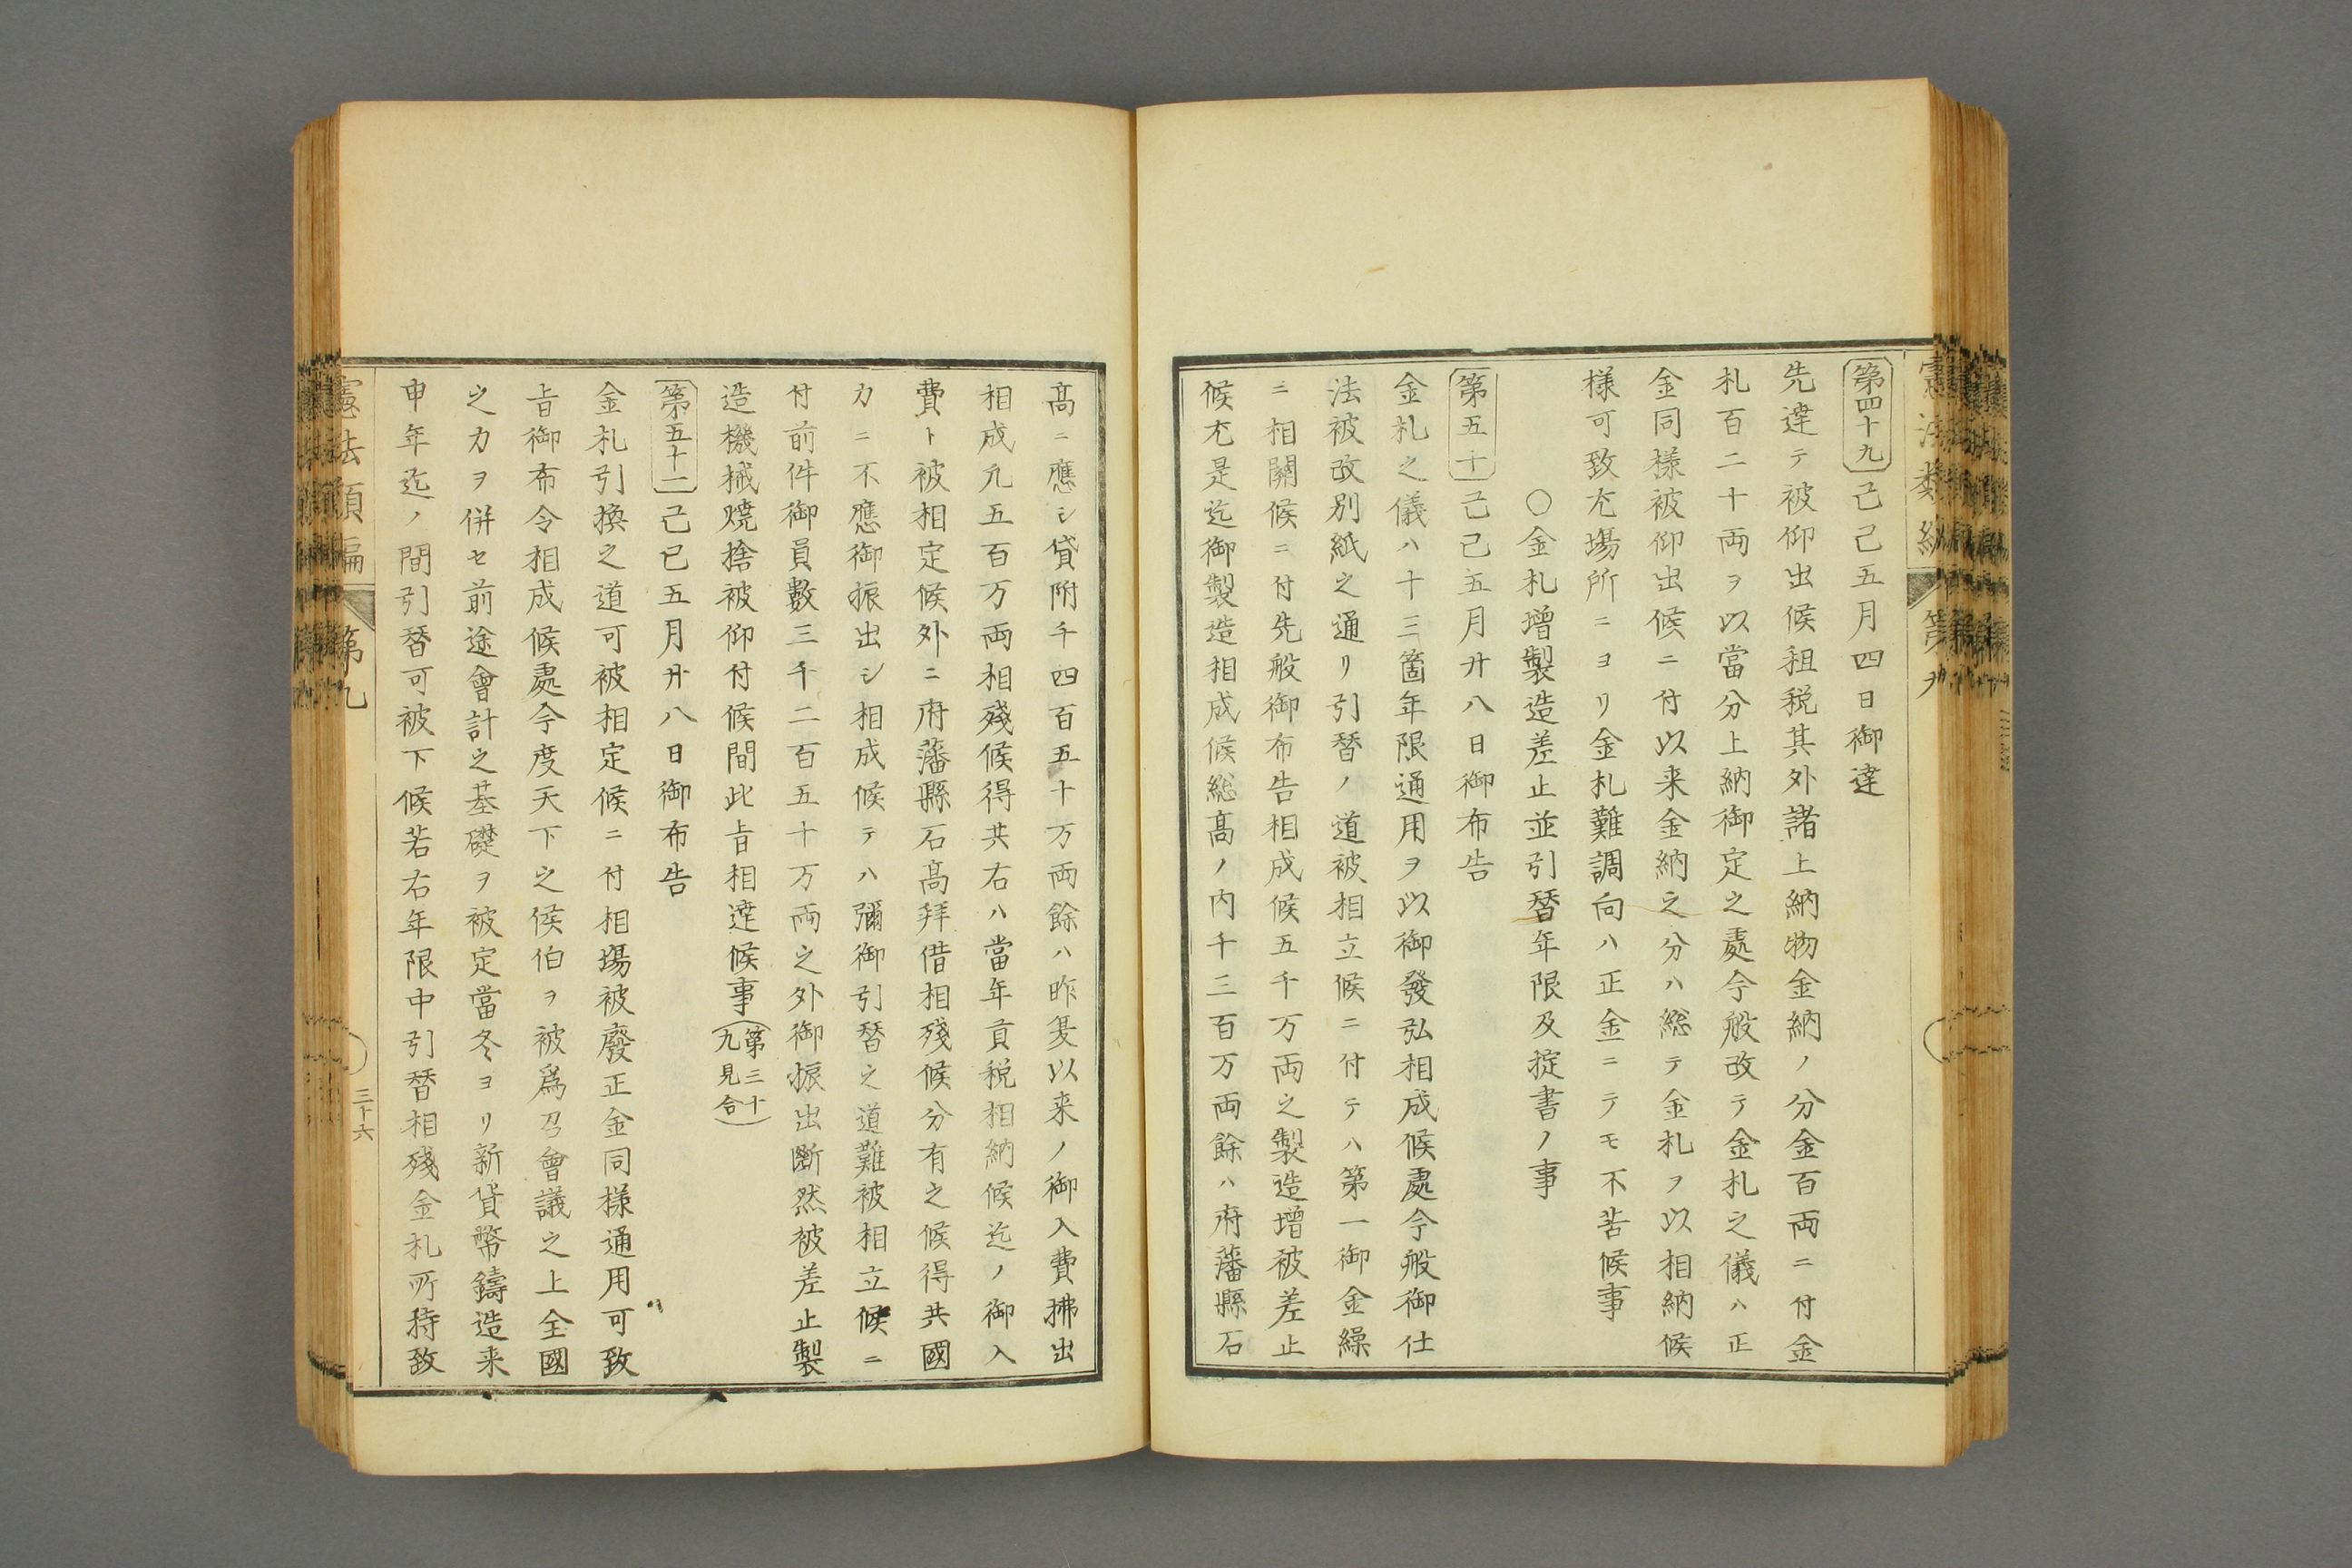 第四十九 己巳五月四日御達
先達テ被仰出候租税其外諸上納物金納ノ分金百両ニ付金
札百二十両ヲ以當分上納御定之處今般改テ金札之儀ハ正
金同様被仰出候ニ付以来金納之分ハ総テ金札ヲ以相納候
様可致尤場所ニヨリ金札難調向ハ正金ニテモ不苦候事
〇金札増製造差止並引替年限及掟書ノ事
第五十 己巳五月廾八日御布告
金札之儀ハ十三箇年限通用ヲ以御發弘相成候處今般御仕
法被改別紙之通リ引替ノ道被相立候ニ付テハ第一御金繰
ニ相關候ニ付先般御布告相成候五千万両之製造増被差止
候尤是迄御製造相成候総髙ノ内千三百万両餘ハ府藩縣石
髙ニ應シ貸附千四百五十万両餘ハ昨夏以来ノ御入費拂出
相成凢五百万両相殘候得共右ハ當年貢税相納候迄ノ御入
費ト被相定候外ニ府藩縣石髙拝借相殘候分有之候得共國
力ニ不應御振出シ相成候テハ彌御引替之道難被相立候ニ
付前件御員數三千二百五十万両之外御振出斷然被差止製
造機械焼捨被仰付候間此㫖相達候事（第三十九見合）
第五十一 己巳五月廾八日御布告
金札引換之道可被相定候ニ付相場被廢正金同様通用可致
㫖御布令相成候處今度天下之侯伯ヲ被爲召會議之上全國
之力ヲ併セ前途會計之基礎ヲ被定當冬ヨリ新貨幣鑄造来
申年迄ノ間引替可被下候若右年限中引替相殘金札所持致
憲法類編 第九 三十六